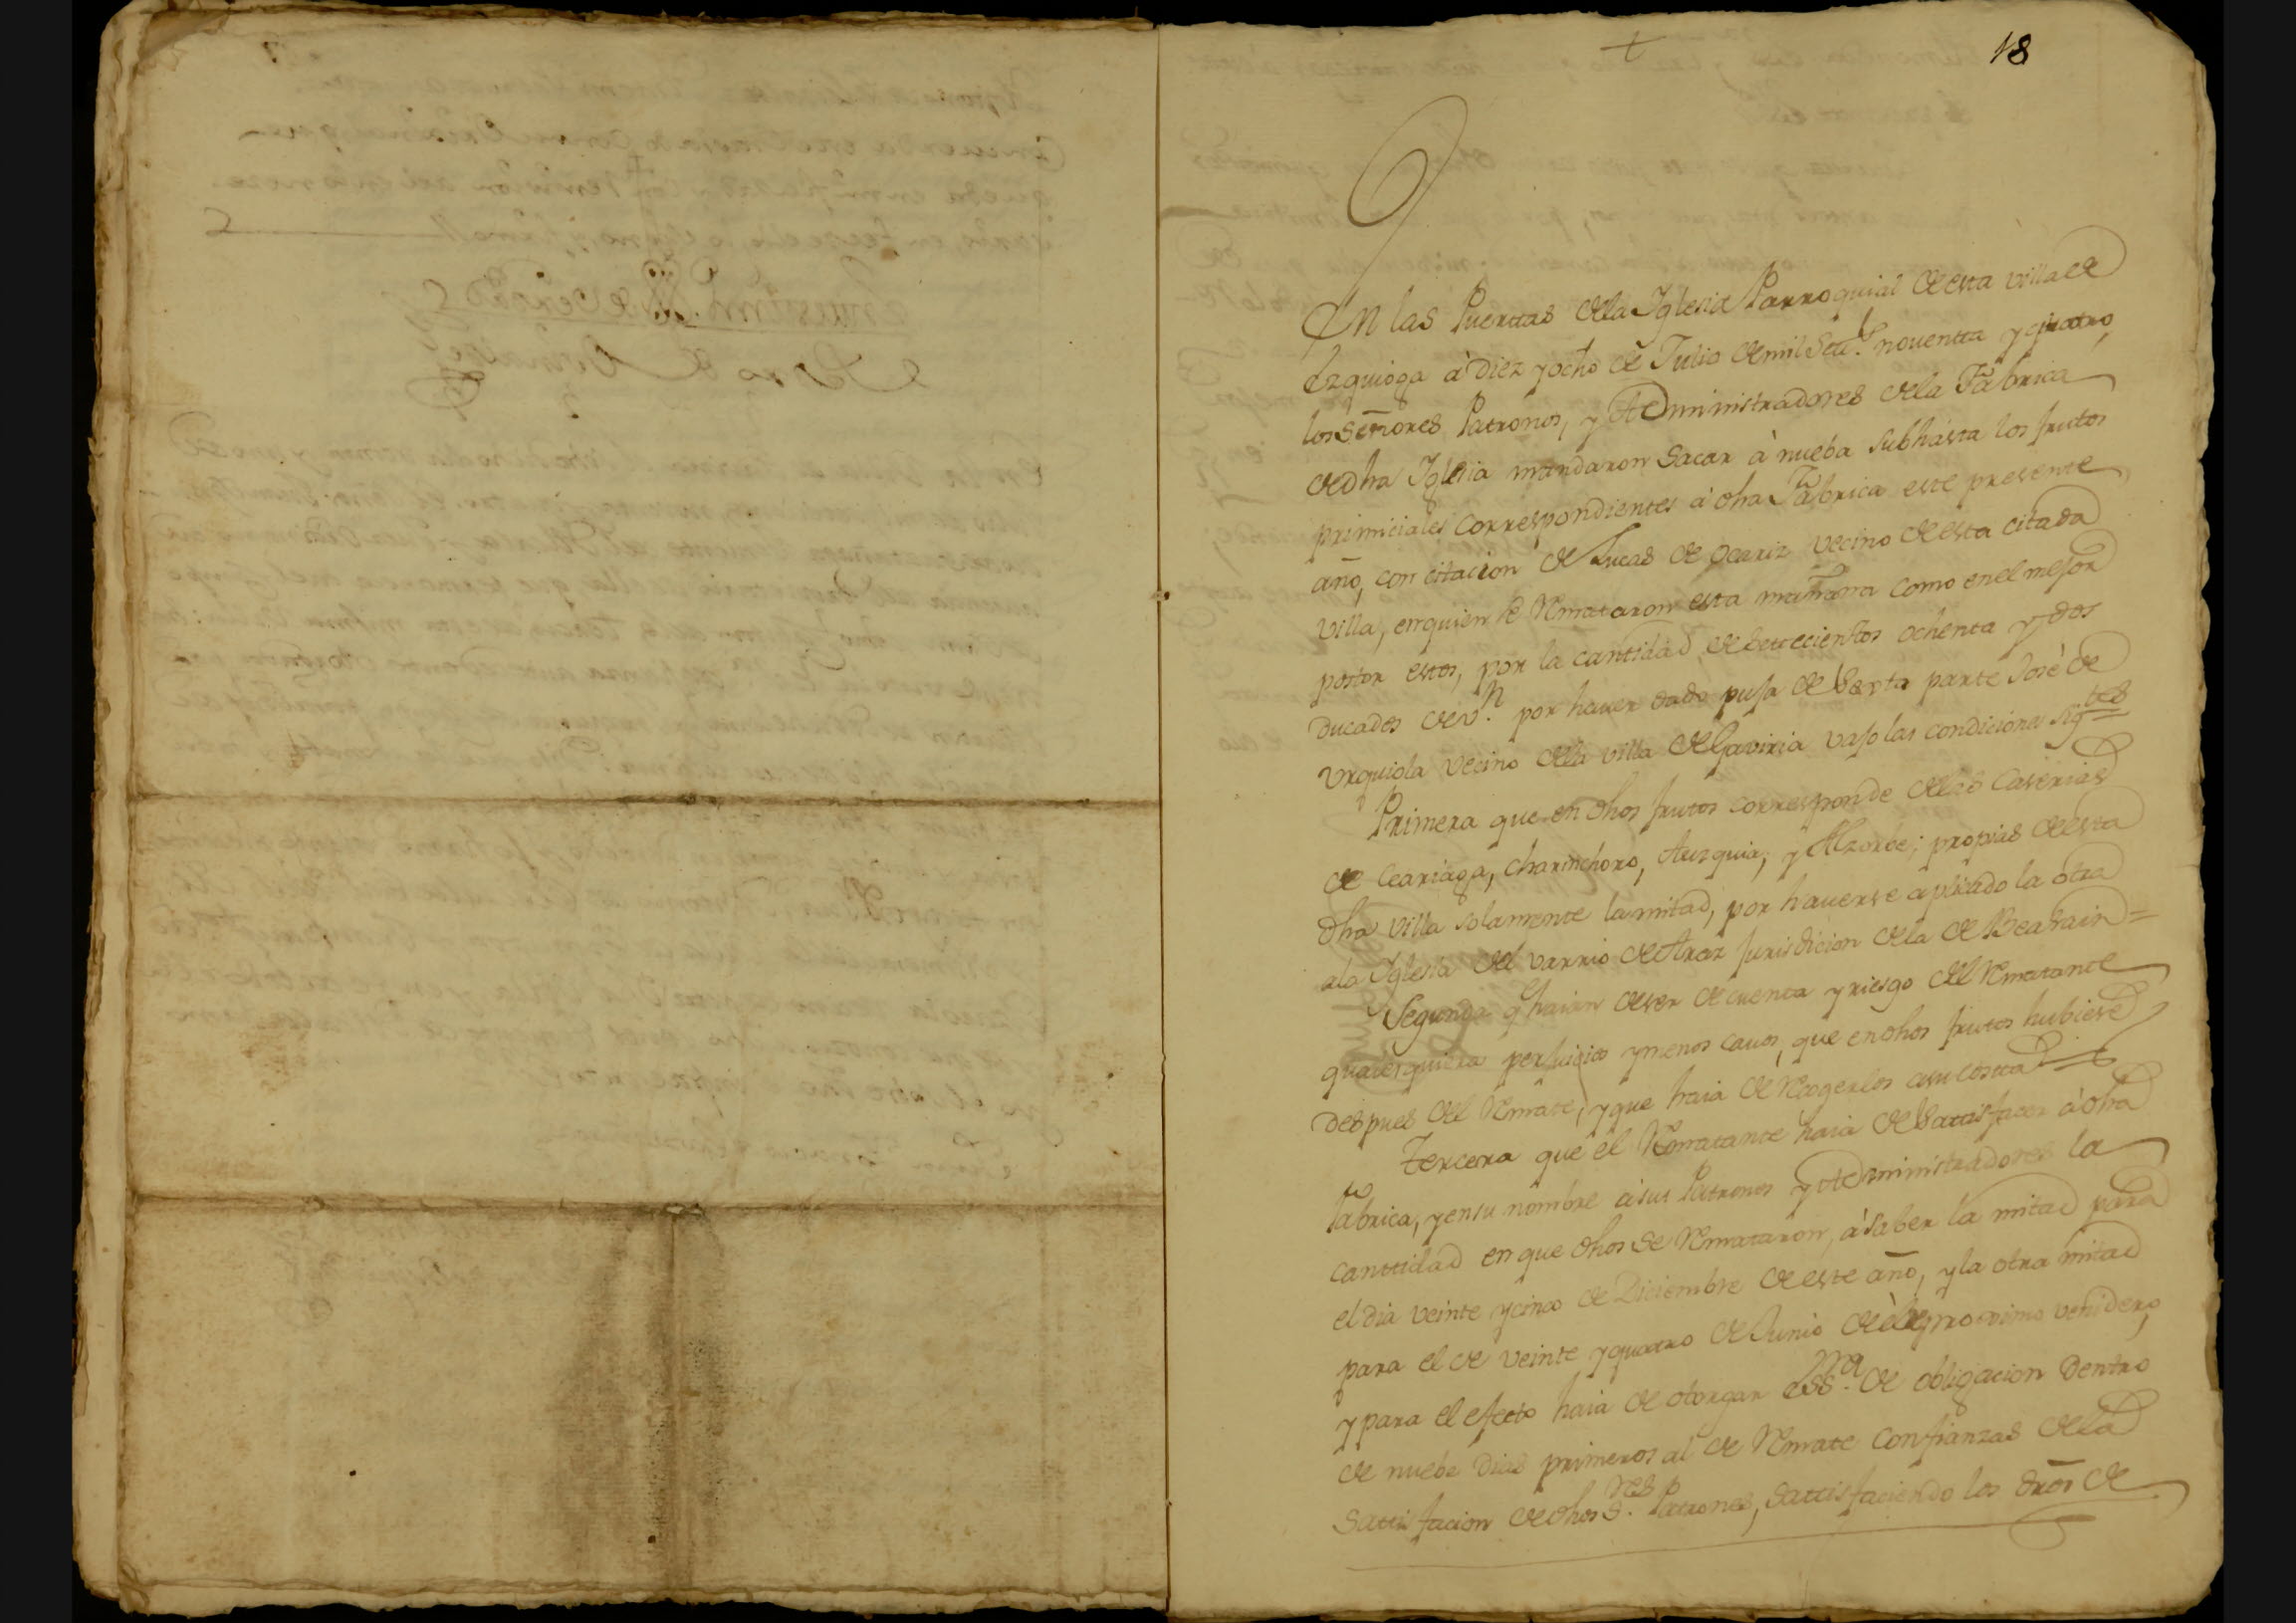 18
En las Puertas dela Iglesia Parroquial de esta villa de
Ezquioga à diez y ocho de Julio de mil Set.s noventta y quatro,
los señores Patronos, y Administradores dela Fabrica
de dha Iglesia mandaron sacar à nueba subhasta los frutos
primiciales correspondientes à dha Fabrica este presente
año, con citacion de Lucas de Ocariz vecino de esta citada
villa, en quien se Remataron esta mañana como en el mejor
postor estos, por la cantidad de settecientos ochenta y dos
ducados de v.n por haver dado puja de Sexta parte José de
Urquiola vecino dela villa de Gaviria vajo las condiciones sig.tes
Primera que en dhos frutos corresponde delas Caserias
de Ceariaga, Charinchoro, Auzquia, y Alzorbe; propias de esta
dha villa solamente la mitad, por haverse aplicado la otra
ala Iglesia del varrio de Araz jurisdicion dela de Beasain=
Segunda q haian de ser de cuenta y riesgo del Rematante
qualesquiera perjuicios y menos cavos, que en dhos frutos hubiese
despues del Remate, y que haia de Recogerlos a su costta=
Tercera que el Rematante haia de Sattisfacer à dha
Fabrica, y en su nombre à sus Patronos y Administradores la
canttidad en que dhos se Remataron, à saber la mitad para
el dia veinte y cinco de Diciembre de este año, y la otra mitad
para el de veinte y quatro de Junio de el proximo venidero,
y para el efecto haia de otorgar ess.ra de obligacion dentro
de nuebe dias primeros al de Remate con fianzas dela
Sattisfacion de dhos S.res Patrones, sattisfaciendo los dros de